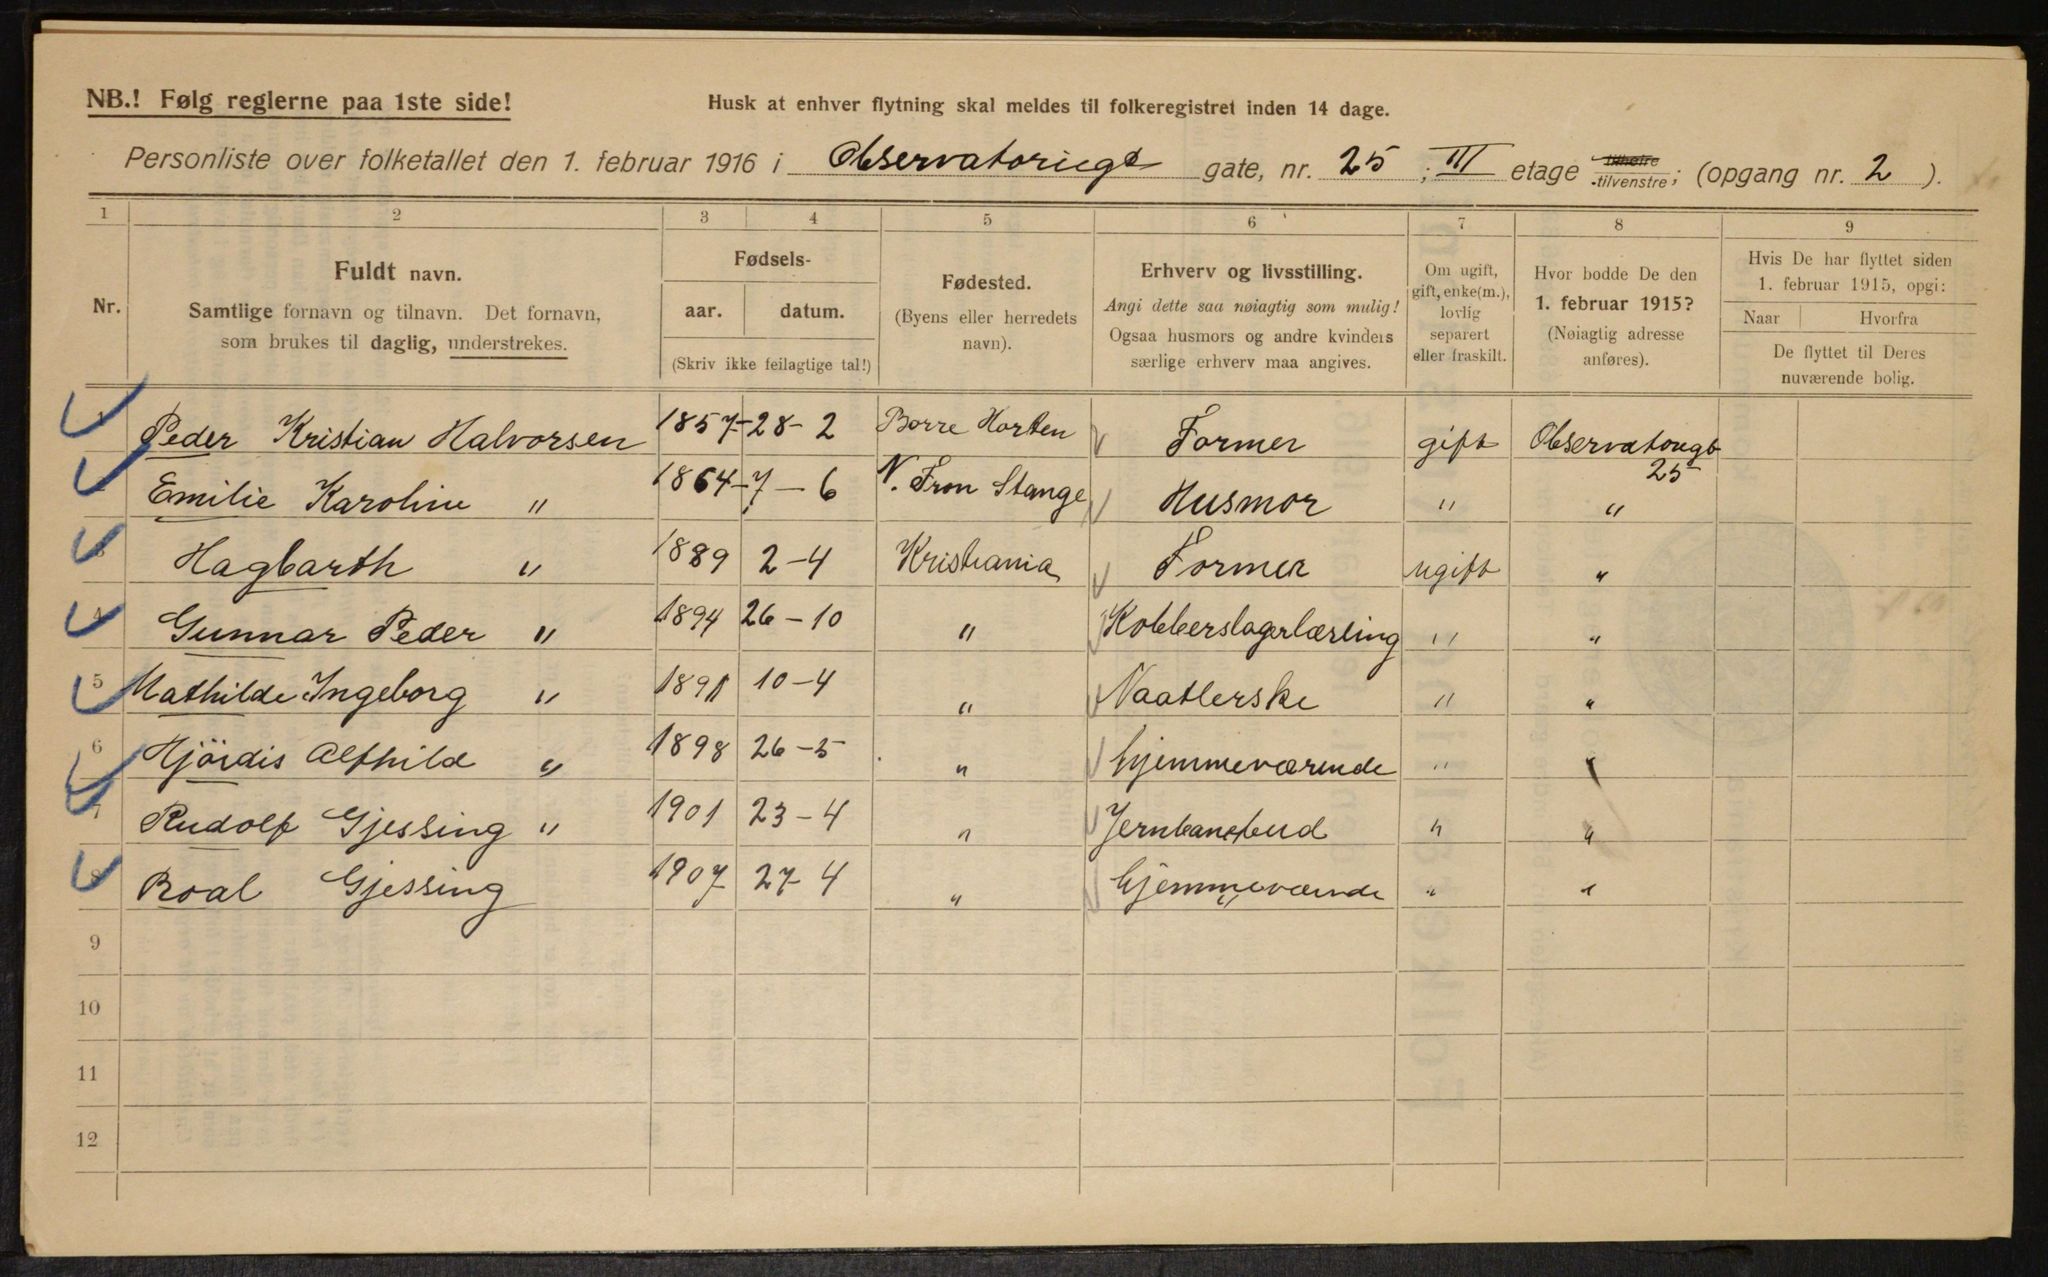 NB.! Følg reglerne paa 1ste side!
Husk at enhver flytning skal meldes til folkeregistret inden 14 dage.
Personliste over folketallet den 1. februar 1916 i Observatoriegt gate, nr. 25 ; III etage tilhøire tilvenstre; (opgang nr. 2 ).
1 2 3 4 5 6 7 8 9
Nr.
Fuldt navn.
Samtlige fornavn og tilnavn. Det fornavn,
som brukes til daglig, understrekes.
Fødsels-
aar. datum.
(Skriv ikke feilagtige tal!)
Fødested.
(Byens eller herredets
navn).
Erhverv og livsstilling.
Angi dette saa nøiagtig som mulig!
Ogsaa husmors og andre kvinders
særlige erhverv maa angives.
Om ugift,
gift, enke(m.),
lovlig
separert
eller fraskilt.
Hvor bodde De den
1. februar 1915?
(Nøiagtig adresse
anføres).
Hvis De har flyttet siden
1. februar 1915, opgi:
Naar Hvorfra
De flyttet til Deres
nuværende bolig.
Peder Kristian Halvorsen 1857 - 28 - 2 Borre Horten Former gift Observatougt
25
Emilie Karoline " 1864 - 7 - 6 N. Fron Stange Husmor " "
3 Hagbarth " 1889 2 - 4 Kristiania Former ugift "
4 Gunnar Peder " 1894 26 - 10 " Kobberslagerlærling " "
5 Mathilde Ingeborg " 1891 10 - 4 " Naatlerske " "
6 Hjördis Alfhild " 1898 26 - 5 " hjemmeværende " "
7 Rudolf Gjessing " 1901 23 - 4 " Jernbanebud " "
8 Roal Gjessing 1907 27 - 4 " hjemmeværende " "
9
10
11
12